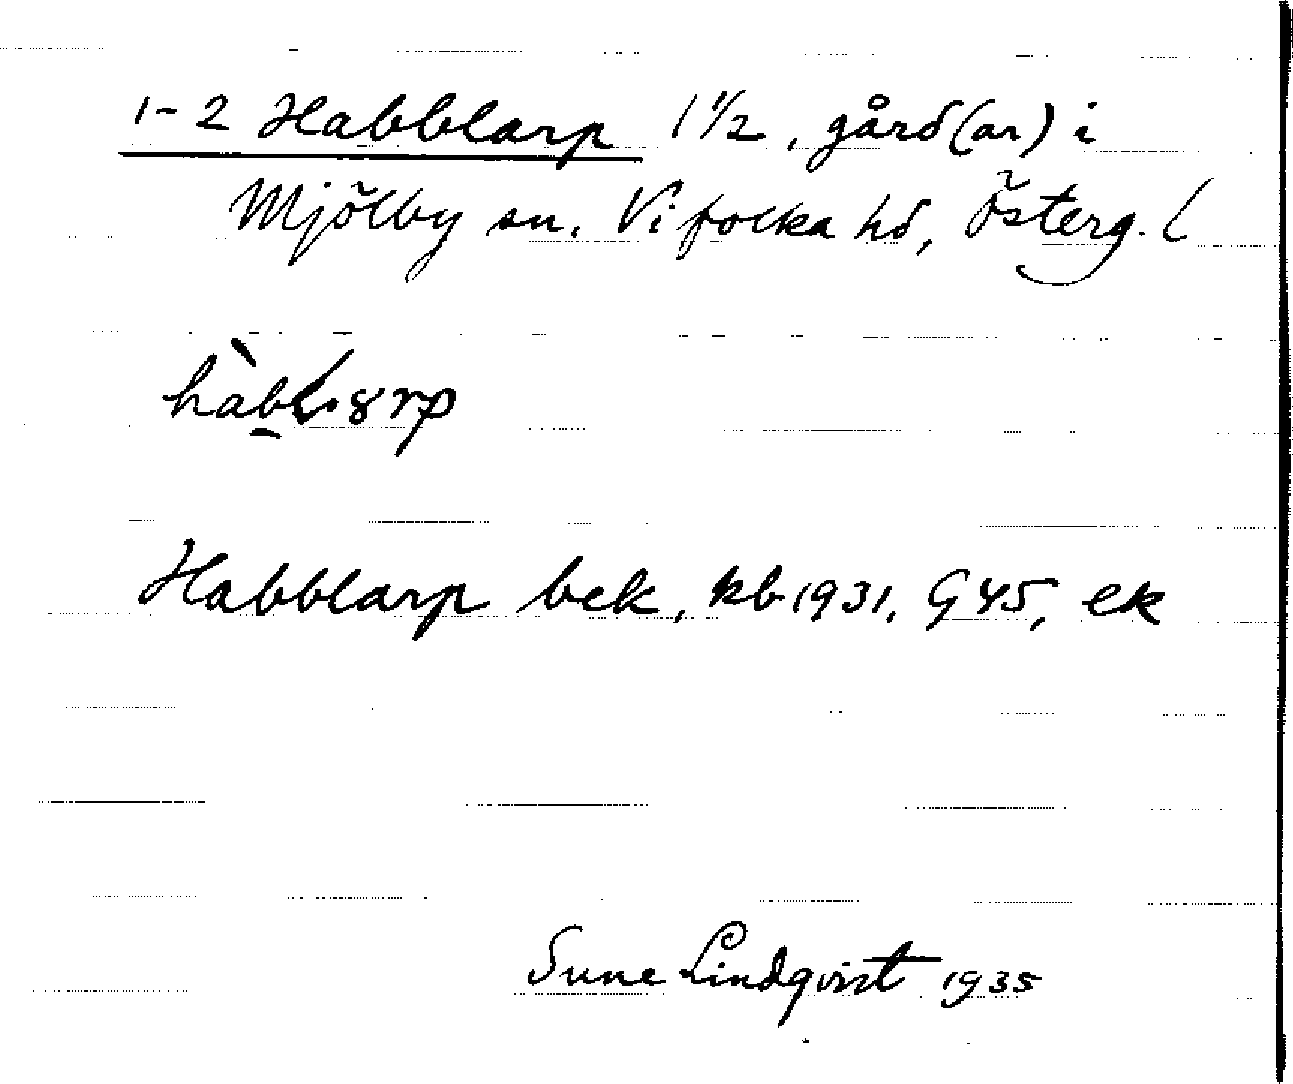 1-2 Habblarp 1 1/2, gård(ar) i
Mjölby sn. Vifolka hd, Österg. l
Habblarp bek, kb 1931, G45, ek
Sune Lindqvist 1935